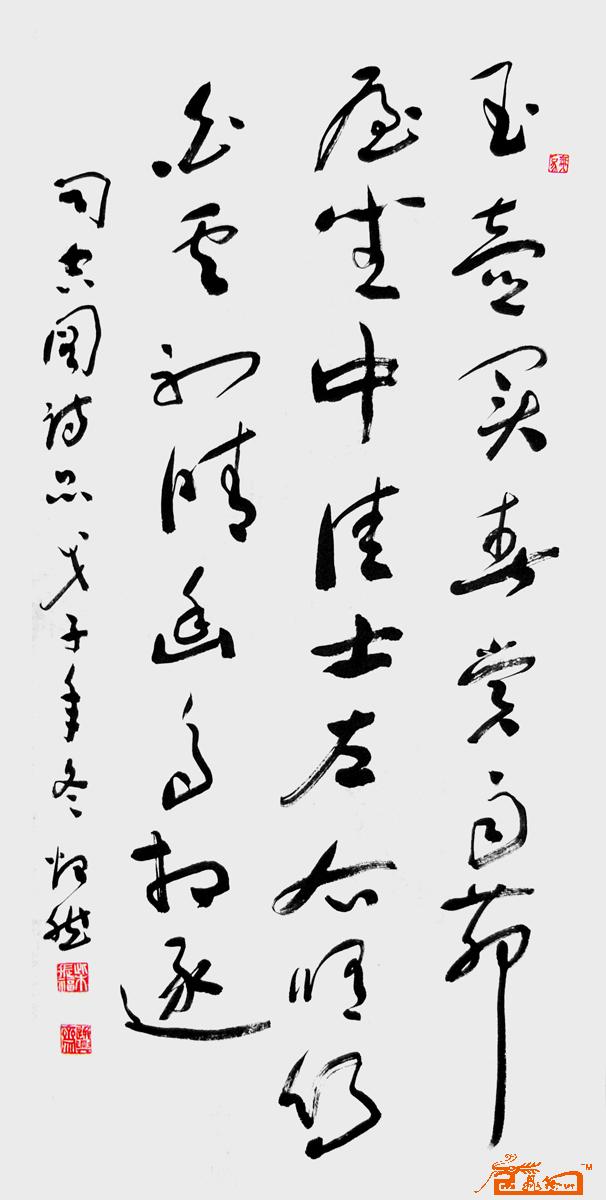 玉壶买春赏雨茆
屋坐中佳士左右修竹
白云初晴幽鸟相逐
司空图诗品戊子年冬